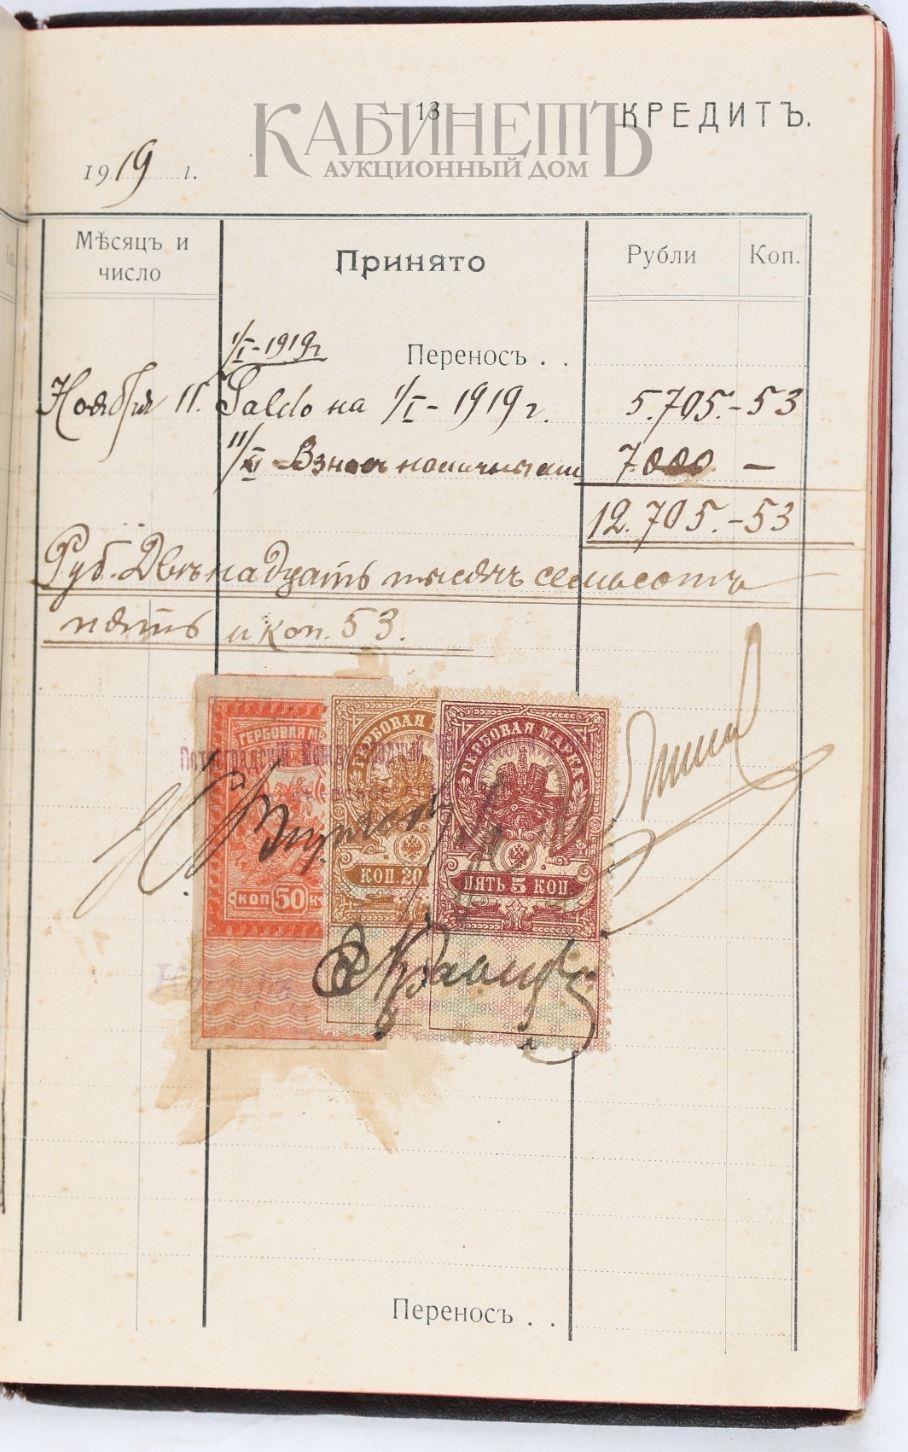 КАБИНЕТЪ
АУКЦИОННЫЙ ДОМ
— 13 — КРЕДИТЪ.
1919 г.
Мѣсяцъ и число Принято Рубли Коп.
1/I-1919 г Переносъ . .
Ноября 11. Saldo на 1/I - 1919 г. 5.705.-53
11/XI - Взносъ наличными 7000 —
12.705.-53
Руб. Двѣнадцать тысячъ семьсотъ
пять и коп. 53.
ГЕРБОВАЯ М
ГЕРБОВАЯ М
ГЕРБОВАЯ МАРКА
Петроградскій Международный
КОП 50 К
КОП 20
ПЯТЬ 5 КОП
Переносъ . .